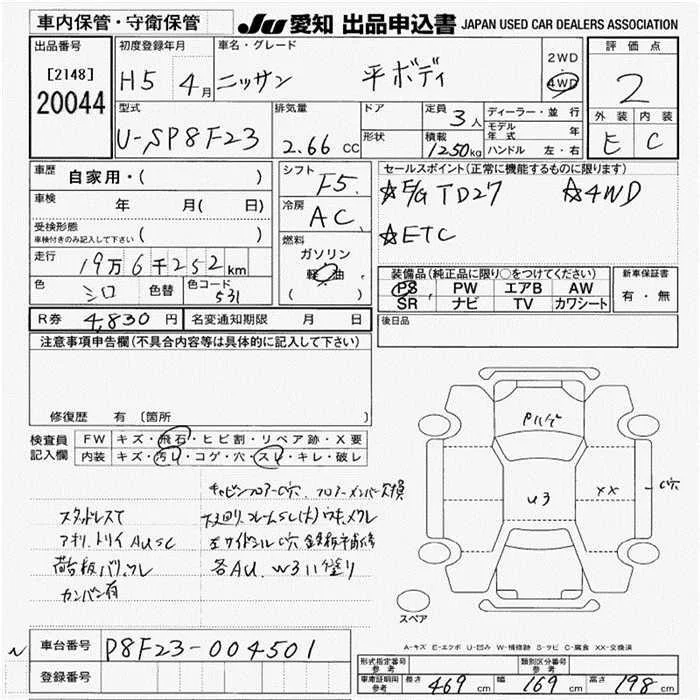 車内保管・守衛保管
JU 愛知 出品申込書 JAPAN USED CAR DEALERS ASSOCIATION
出品番号 初度登録年月 車名・グレード 評価点
[2148] H5 4月 ニッサン 平ボディ 2WD 4WD 2
20044 外装 内装
型式 排気量 ドア 定員 3人 ディーラー・並行 E C
U-SP8F23 2.66 cc 形状 積載 1250kg モデル年式 年
ハンドル 左・右
車歴 自家用・( ) シフト F5 セールスポイント(正常に機能するものに限ります)
車検 年 月( 日) 冷房 AC ☆E/G TD27 ☆4WD
受検形態 ( ) ☆ETC
車検付きのみ記入して下さい
燃料
走行 19万6千252km ガソリン
軽油
( )
色 シロ 色替 色コード 531
装備品(純正品に限り○をつけてください) 新車保証書
PS PW エアB AW 有・無
SR ナビ TV カワシート
R券 4,830円 名変通知期限 月 日 後日品
注意事項申告欄(不具合内容等は具体的に記入して下さい)
修復歴 有 〔箇所
検査員 FW キズ・飛石・ヒビ割・リペア跡・X要
記入欄 内装 キズ・汚レ・コゲ・穴・スレ・キレ・破レ
Pハゲ
U3 XX C穴
キャビンフロアーC穴 フロアーメンバー交換
スタッドレスT
アオリ、トリイ AUSC
荷台板バリ、ワレ
カンバン有
各AU、W3ハ塗り
スペア
A-キズ E-エクボ U-凹み W-補修跡 S-サビ C-腐食 XX-交換済
車台番号 P8F23-004501
登録番号
形式指定番号 参考 類別区分番号 参考
車庫証明用 参考 長さ 469cm 幅 169cm 高さ 198cm